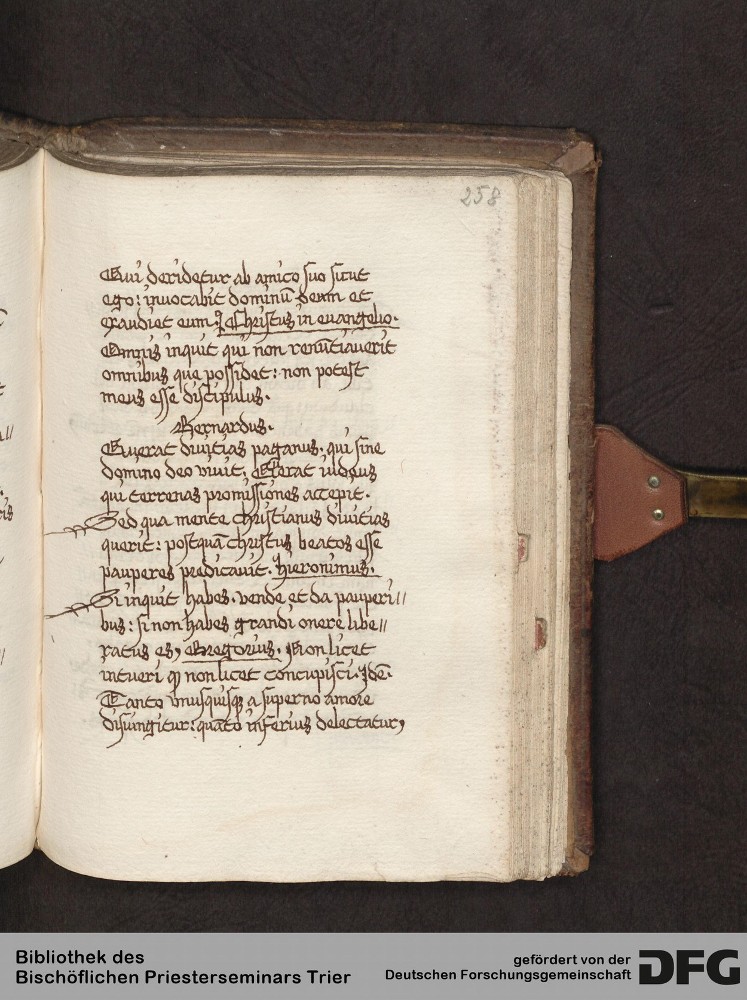 258
Qui deridetur ab amico suo sicut
ego: invocabit dominū deum et
exaudiet eum. Christus in euangelio.
Omnis inquit qui non renūtiaverit
omnibus que possidet: non potest
meus esse discipulus.
Bernardus.
Querat divitias paganus, qui sine
domino deo vivit, Querat iudeus
qui terrenas promissiones accepit.
Sed qua mente christianus divitias
querit: postquā christus beatos esse
pauperes predicavit. Hieronimus.
Si inquit habes, vende et da pauperi//
bus: si non habes grandi onere libe//
ratus es, Gregorius. Non licet
intueri qđ non licet concupisci. Idē.
Tanto unusquisqȝ a superno amore
disiungitur: quāto inferius delectatur,
Bibliothek des
Bischöflichen Priesterseminars Trier
gefördert von der
Deutschen Forschungsgemeinschaft
DFG